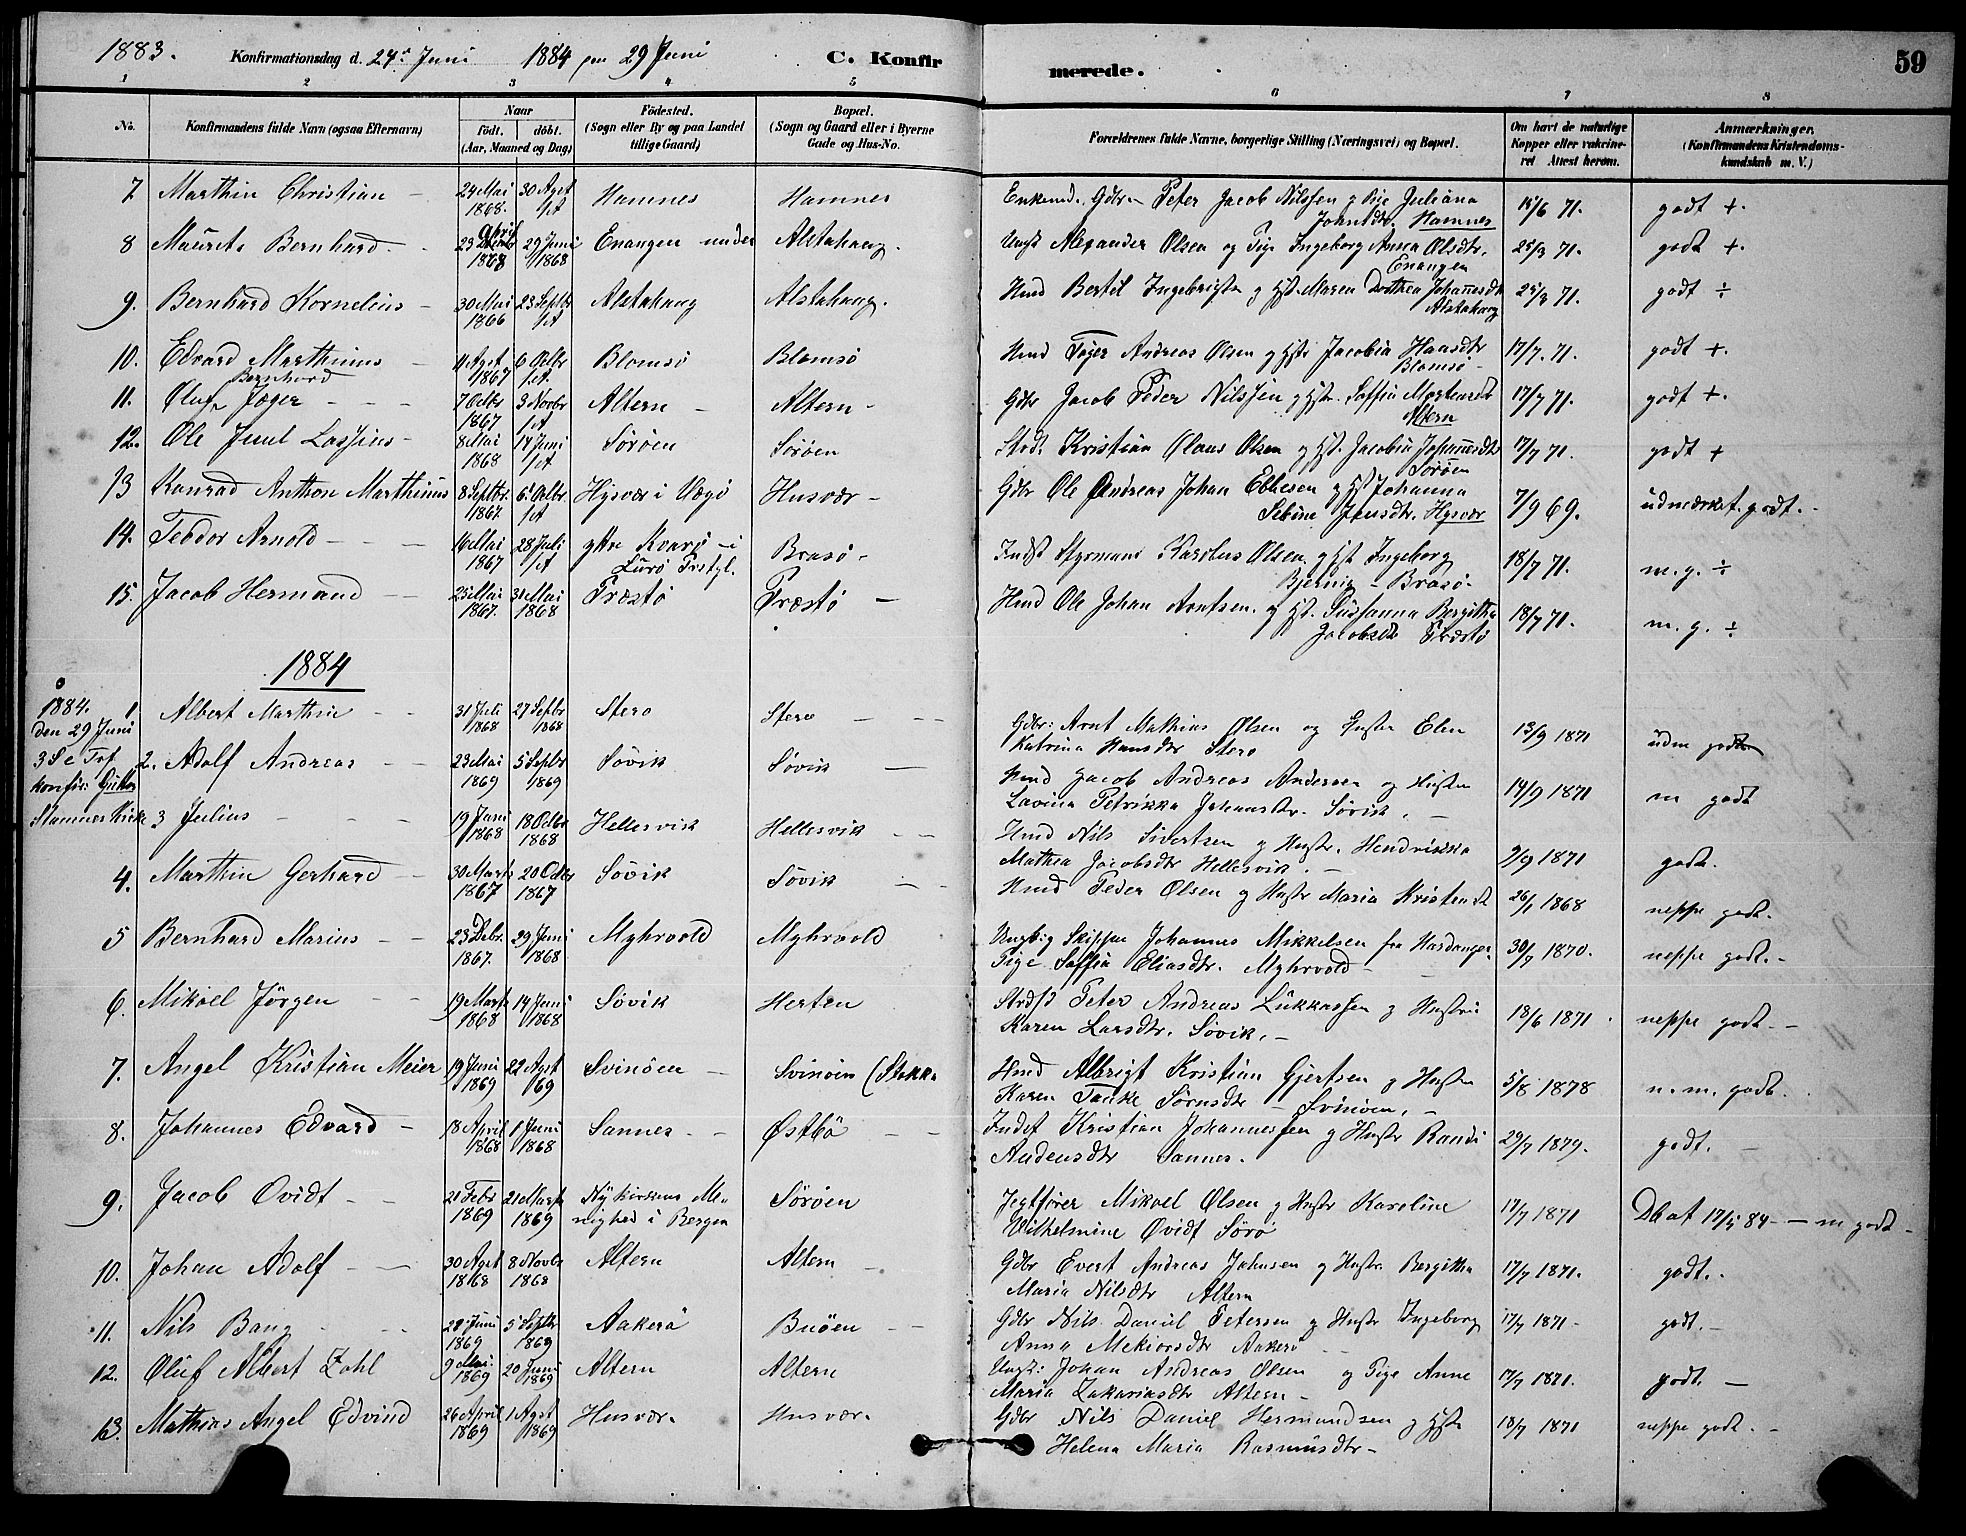 1883. Konfirmationsdag d. 24de Juni 1884 den 29 Juni C. Konfirmerede. 59
1 2 3 4 5 6 7 8
No. Konfirmandens fulde Navn (ogsaa Efternavn) Naar født, døbt. (Aar, Maaned og Dag) Födested. (Sogn eller By og paa Landet tillige Gaard) Bopæl. (Sogn og Gaard eller i Byerne Gade og Hus-No. Forældrenes fulde Navne, borgerlige Stilling (Næringsvei) og Bopæl. Om havt de naturlige Kopper eller vakcineret Attest herom. Anmærkninger. (Konfirmandens Kristendomskundskab m. V.)
7 Marthin Christian 24 Mai 1868. 30 Agst s/A Hamnes Hamnes Enkemd. Gdbr. Peter Jacob Nilssen g Pige Juliana Johnsdtr. Hamnes 15/6 71. godt +.
8 Maurits Bernhard 23 April 1868 29 Juni 1868 Enangen under Alstahaug. Ungk Alexander Olsen og Pige Ingeborg Anna Olsdtr. Enangen 25/3 71. godt +.
9. Bernhard Kornelius 30 Mai 1866 23 Septbr s/A Alstahaug Alstahaug. Hmd Bertil Ingebrigtsn g Hst. Maren Dorthea Johanesdtr Alstahaug 25/3 71. godt ÷
10. Edvard Marthinus 11 Agst 1867 6 Octbr s/A. Blomsö Blomsö Hmd Töger Andreas Olsen g Hstr Jacobia Haasdtr Blomsö 17/7. 71. godt +.
11. Oluf Bernhard Jæger 7 Octbr 1867 3 Novbr s/A Altern Altern Gdbr Jacob Peder Nilssen g Hstr. Soffia Mortensdtr Altern 17/7 71. godt +.
12. Ole Juul Lassius 8 Mai 1868 14 Juni s/A Söröen Söröen Strdt. Kristian Olaus Olsen g Hst. Jacobia Johannesdtr Söröen 17/7 71. godt +
13 Konrad Anthon Marthinus 8 Septbr. 1867 6 Octbr. s/A Hysvær i Vægö Husvær Gdbr Ole Andreas Johan Ebbesen g Hst Johanna Sebine Jensdtr. Hysvær 7/9 69. udmærket godt.
14. Teodor Arnold 16 Mai 1867 28 Juli s/A yttre Kvarö i Lurö Prstgl. Brasö Indst Styrmand Karolus Olsen g Hst Ingeborg Bjernig Brasö. 18/7 71. m.g. ÷
15. Jacob Hermand 25 Mai 1867. 31 Mai 1868 Træstö Præstö Hmd Ole Johan Arntsen. g Hst. Sussanna Bergitha Jacobsdtr Træstö 18/7 71. m.g. ÷
1884
1884. den 29 Juni 3 Se Trf konfir: Stamnes Kirke
1 Albert Marthin 31 Juli 1868 27 Septbr 1868 Stero Stero Gdbr: Arnt Mathias Olsen og Hustr Elen Katrina Hansdtr Stero 13/9 1871 udm godt
2. Adolf Andreas 23 Mai 1869 5 Septbr 1869 Sövik Sövik Hmd Jacob Andreas Andersen og Hustru Lavina Petrikka Johansdtr. Sövik. 14/9 1871 m godt
3 Julius 19 Juni 1868 18 Octbr 1868 Hellesvik Hellesvik Hmd Nils Sivertsen g Hustr. Hendrikka Mathea Jacobsdtr Hellesvik. 9/9 1871 godt.
4. Marthin Gerhard 30 Marts 1867 20 Octbr 1867 Sövik Sövik Hmd Peder Olsen g Hustr Maria Kristensdtr 26/1 1868 neppe godt.
5 Bernhard Marius 23 Debr. 1867. 29 Juni 1868 Myhrvold Myhrvold Ungkg Skipper Johannes Mikkelsen fra Hardanger. Pige Soffia Eliasdtr. Myhrvold 30/7 1870. neppe godt.
6. Mikael Jörgen 19 Marts 1868 14 Juni 1868 Sövik Herten Strdsd Peter Andreas Lukkassen g Hustru Karen Larsdtr. Sövik. 18/6 1871 neppe godt.
7. Angel Kristian Meier 19 Juni 1869 22 Agst 69 Svinöen Svinöen (Stokka Hmd Albrigt Kristian Gjertsen g Hustru Karen Tanke Sörnsdtr Svinöen. 5/8 1878 n. m. godt.
8. Johannes Edvard 18 April 1868 1 Juni 1868 Sannes Östbö Indst Kristian Johannessen g Hustr Randi Andersdtr Sannes. 29/7 1879. godt.
9. Jacob Ovidt 21 Febr 1869 21 Marts 1869 Nykirkens Menighed i Bergen Söröen Jegtförer Mikael Olsen g Hustr Karoline Wilhelmine Ovidt Sörö 17/7 1871 Dbat 17/5 84 m godt
10. Johan Adolf 30 Agst 1868 8 Novbr 1868 Altern Altern Gdbr Evert Andreas Johnsen g Hustr. Bergitha Maria Nilsdtr Altern 17/7 1871. godt.
11. Nils Bang 29 Juni 1869 5 Septbr 1869 Aakerö Buöen Gdbr Nils Daniel Petersen g Hustr Ingeborg Anna Mekiorsdtr Aakerö 17/7 1871 godt.
12. Oluf Albert Zahl 9 Mai 1869 20 Juni 1869 Altern Altern Ungk: Johan Andreas Olsen og Pige Anne Maria Zakariasdtr Altern 17/7 1871. godt.
13. Mathias Angel Edvind 26 April 1869 1 Agst 1869 Husvær. Husvær. Gdbr Nils Daniel Hermundsen g Hstr Helena Maria Rasmusdtr 18/7 1871 neppe godt.